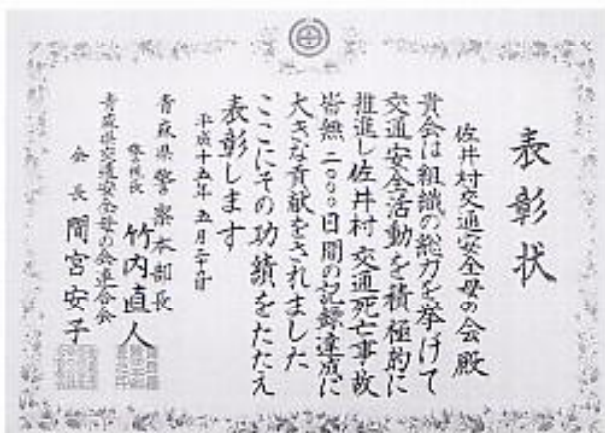 表彰状
佐井村交通安全母の会 殿
貴会は組織の総力を挙げて
交通安全活動を積極的に
推進し佐井村交通死亡事故
皆無二〇〇〇日間の記録達成に
大きな貢献をされました
ここにその功績をたたえ
表彰します
平成十五年五月二十日
青森県警察本部長
警視長 竹内直人
青森県交通安全母の会連合会
会長 間宮安子